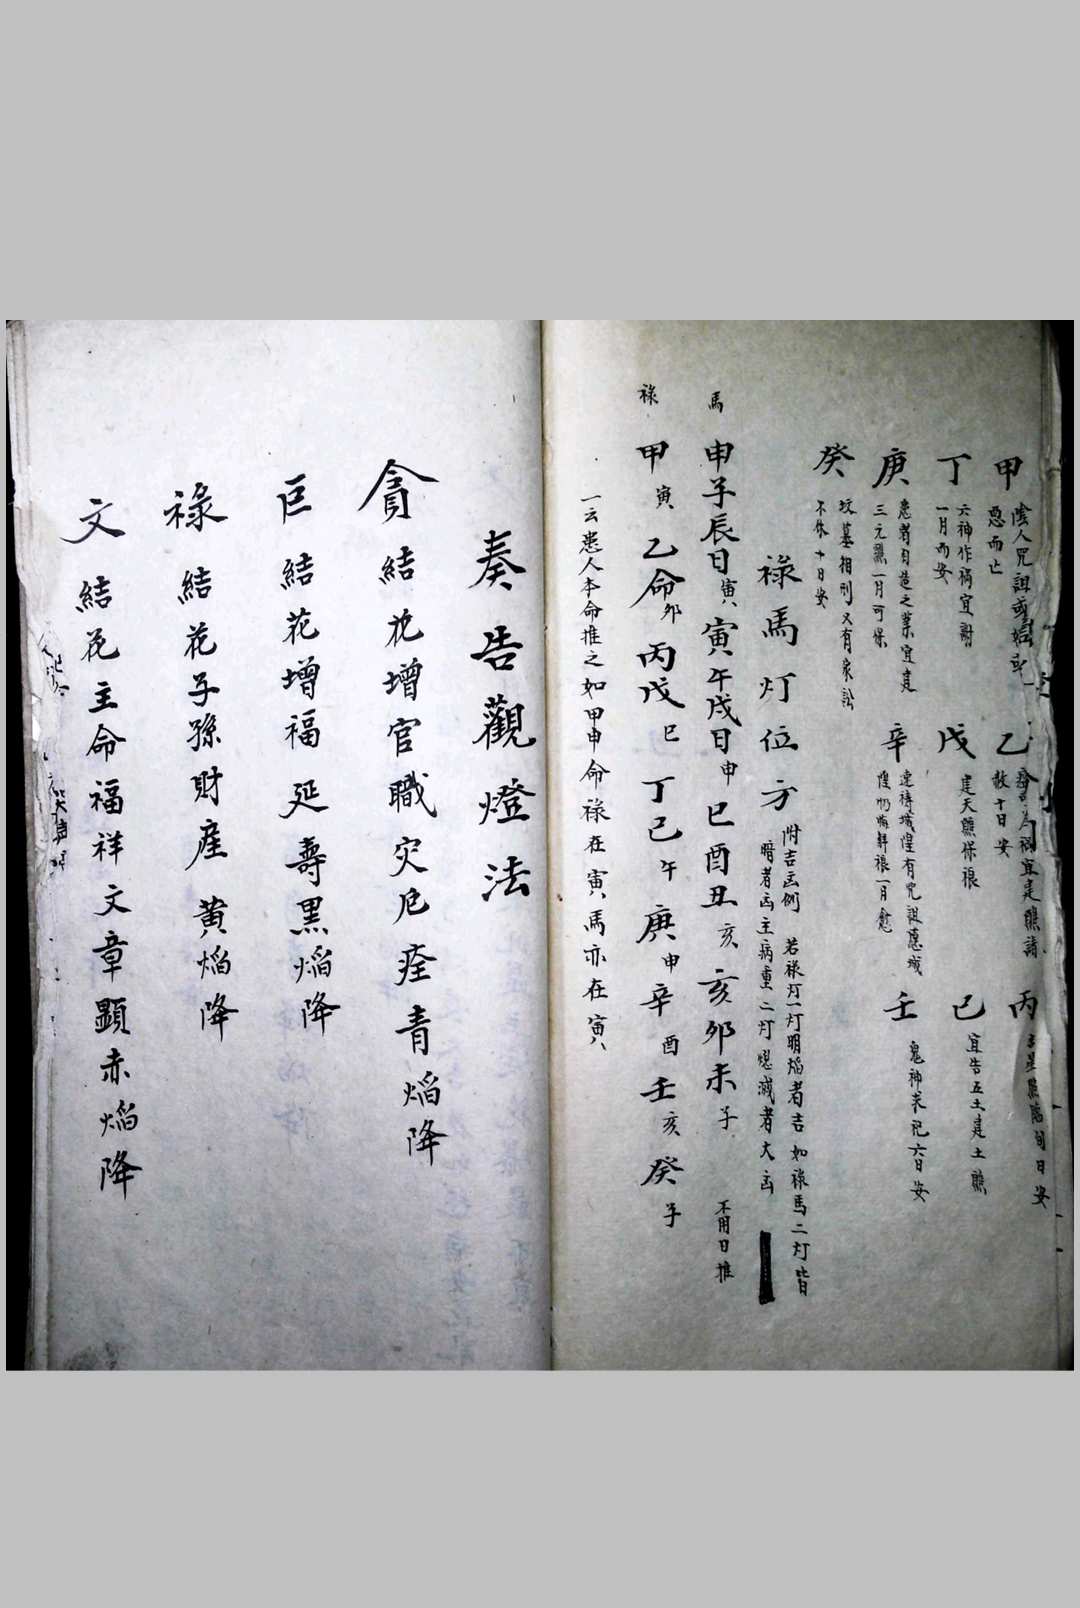 甲 陰人咒詛或
惡而亡
乙 宜建醮請
散十日安
丙 星臨 旬日安
丁 六神作禍宜謝
一月而安
戊 建天醮保禳
己 宜告五土建土醮
庚 患者自造之業宜建
三元醮一月可保
辛 連禱城隍有咒詛惡城
隍 解禳一月愈
壬 鬼神求祀六日安
癸 坟墓相刑又有冢訟
不休十日安
祿馬灯位方 附吉凶例 若祿灯一灯明焰者吉如祿馬二灯皆
暗者凶主病重二灯熄滅者大凶
馬 申子辰日寅 寅午戌日申 巳酉丑亥 亥卯未子 不用日推
祿 甲寅 乙命卯 丙戊巳 丁己午 庚申 辛酉 壬亥 癸子
一云患人本命推之如甲申命祿在寅馬亦在寅
奏告觀燈法
貪 結花增官職灾厄痊青焰降
巨 結花增福延壽黑焰降
祿 結花子孫財産黃焰降
文 結花主命福祥文章顯赤焰降